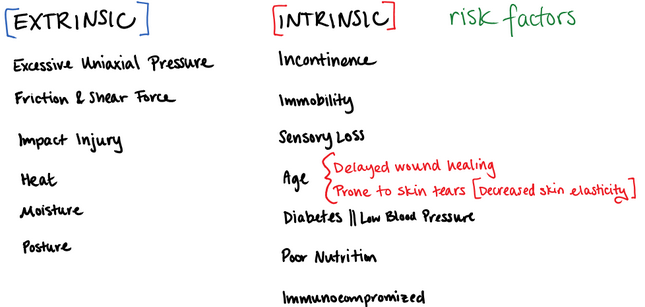 [EXTRINSIC]
Excessive Uniaxial Pressure
Friction & Shear Force
Impact Injury
Heat
Moisture
Posture
[INTRINSIC]
risk factors
Incontinence
Immobility
Sensory Loss
Age { Delayed wound healing
Prone to skin tears [Decreased skin elasticity]
Diabetes || Low Blood Pressure
Poor Nutrition
Immunocompromized